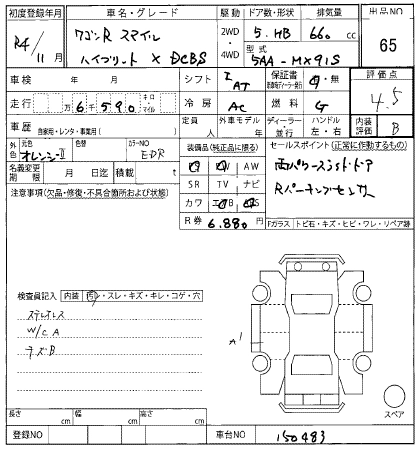 初度登録年月 車名・グレード 駆動 ドア数・形状 排気量 出品NO
R4/11月 ワゴンR スマイル ハイブリット X DCBS 2WD・4WD 5.HB 660 cc 65
型式 5AA-MX91S
車検 年 月 シフト I AT 保証書 有・無 評価点 4.5
走行 万6千590 キロ・マイル 冷房 AC 燃料 G
車歴 自家用・レンタ・事業用( ) 定員 人 外車モデル 年 ディーラー・並行 ハンドル 左・右 内装評価 B
外色 元色 オレンジ-Ⅱ 色替 カラーNO EDR
名義変更期限 月 日迄 積載 t
装備品(純正品に限る) セールスポイント(正常に作動するもの)
PS PW AW
SR TV ナビ
カワ エアB ABS
R券 6.880円
両パワースライドドア
Rパーキングセンサー
注意事項(欠品・修復・不具合箇所および状態)
Fガラス トビ石・キズ・ヒビ・ワレ・リペア跡
検査員記入 内装 汚・スレ・キズ・キレ・コゲ・穴
ステレオレス
W/C A
キズB
A1
スペア
長さ cm 幅 cm 高さ cm
登録NO 車台NO 150483